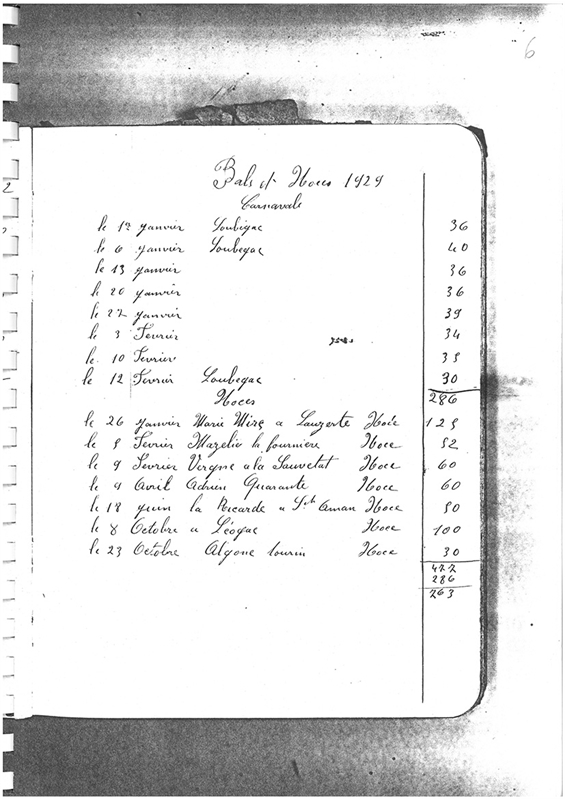 6
Bals et Noces 1929
Carnavals
le 1er janvier Loubejac 36
le 6 janvier Loubejac 40
le 13 janvier 36
le 20 janvier 36
le 27 janvier 39
le 3 Fevrier 34
le 10 Fevrier 35
le 12 Fevrier Loubejac 30
Noces 286
le 26 janvier Marie a Lauzerte Noce 125
le 5 Fevrier la fourniere Noce 52
le 9 Fevrier Vergne a la Sauvetat Noce 60
le 9 Avril Adrien Quarante Noce 60
le 18 juin la Ricarde a Noce 50
le 8 Octobre a Léojac Noce 100
le 23 Octobre Algone Noce 30
477
286
763